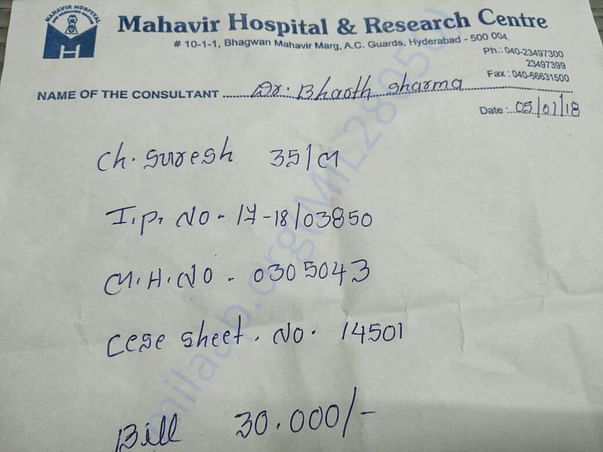 MAHAVIR HOSPITAL
Mahavir Hospital & Research Centre
# 10-1-1, Bhagwan Mahavir Marg, A.C. Guards, Hyderabad - 500 004.
Ph.: 040-23497300
23497399
Fax : 040-66631500
NAME OF THE CONSULTANT Dr. Bhaoth Sharma
Date : 05/01/18
Ch. Suresh 35/M
I.P. No - 17-18/03850
M.H. NO - 0305043
Cese Sheet. No. 14501
Bill 30.000/-